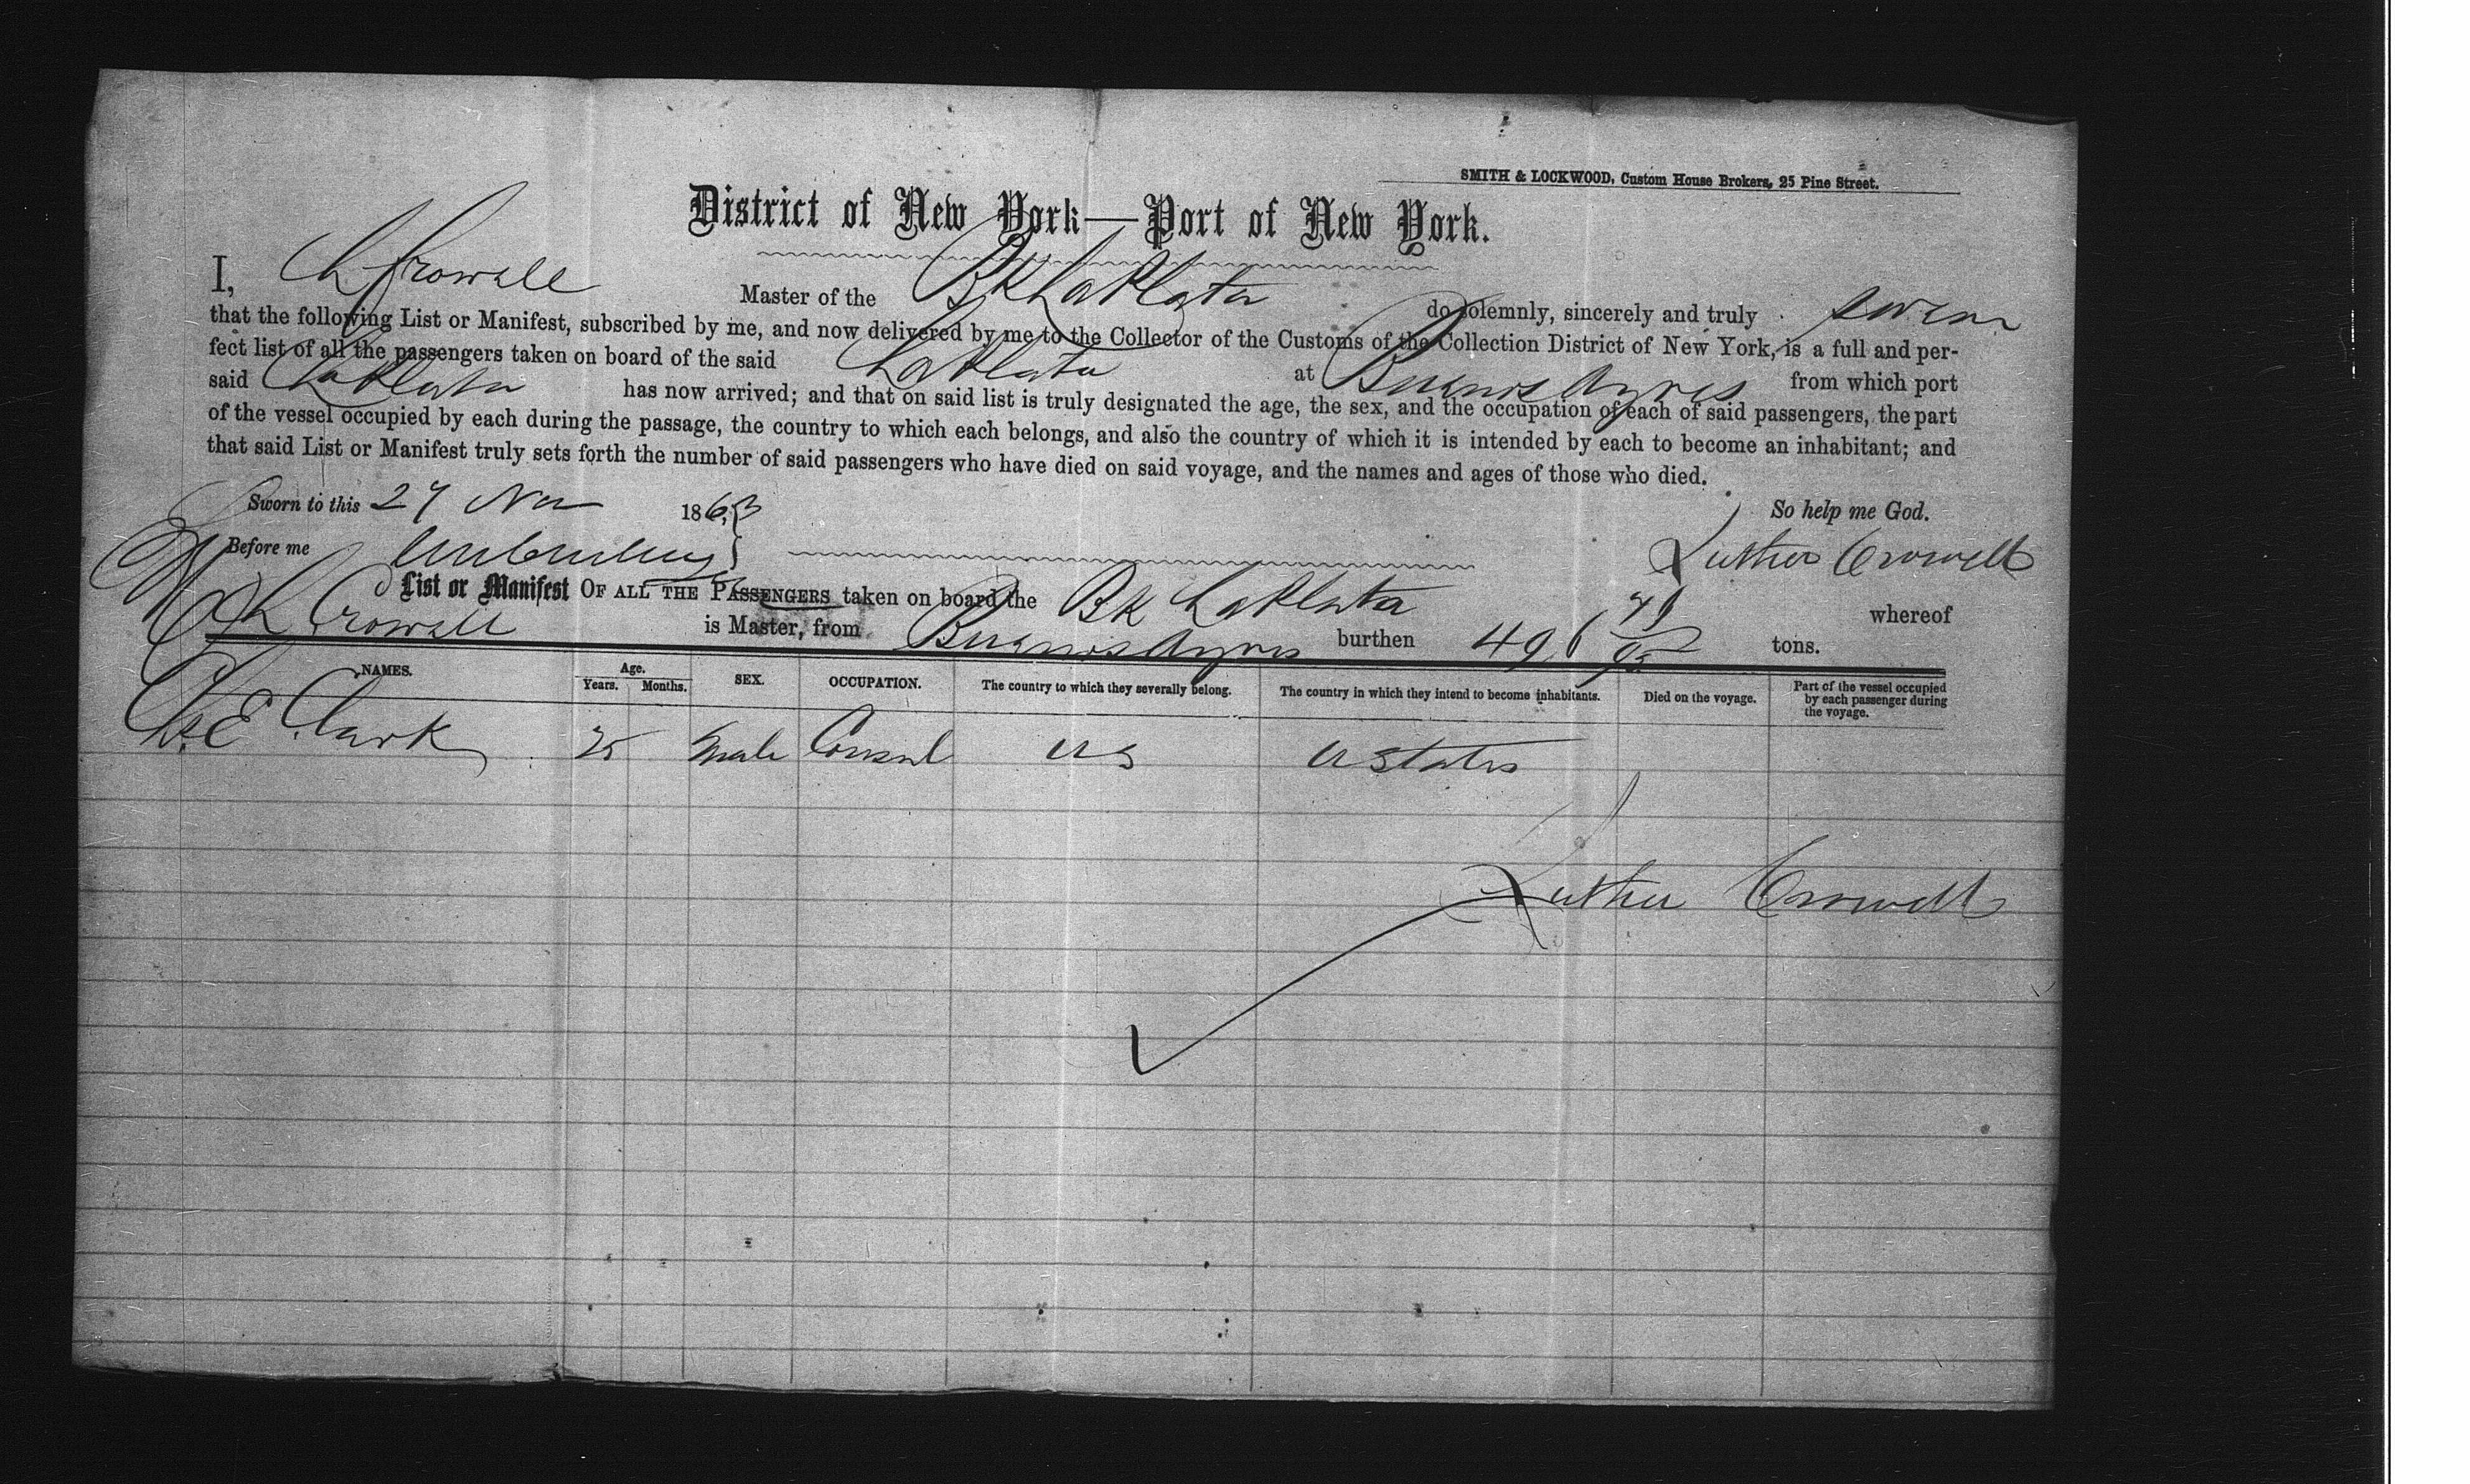 SMITH & LOCKWOOD, Custom House Brokers, 25 Pine Street.
District of New York—Port of New York.
I, L Crowell Master of the Bk La Plata do solemnly, sincerely and truly swear
that the following List or Manifest, subscribed by me, and now delivered by me to the Collector of the Customs of the Collection District of New York, is a full and per-
fect list of all the passengers taken on board of the said La Plata at Buenos Ayres from which port
said La Plata has now arrived; and that on said list is truly designated the age, the sex, and the occupation of each of said passengers, the part
of the vessel occupied by each during the passage, the country to which each belongs, and also the country of which it is intended by each to become an inhabitant; and
that said List or Manifest truly sets forth the number of said passengers who have died on said voyage, and the names and ages of those who died.
Sworn to this 27 Nov 1863 So help me God.
Before me Luther Crowell
List or Manifest OF ALL THE PASSENGERS taken on board the Bk La Plata whereof
L Crowell is Master, from Buenos Ayres burthen 496 tons.
NAMES. Age. Years. Months. SEX. OCCUPATION. The country to which they severally belong. The country in which they intend to become inhabitants. Died on the voyage. Part of the vessel occupied by each passenger during the voyage.
E Clark 25 Male Consul US U States
Luther Crowell